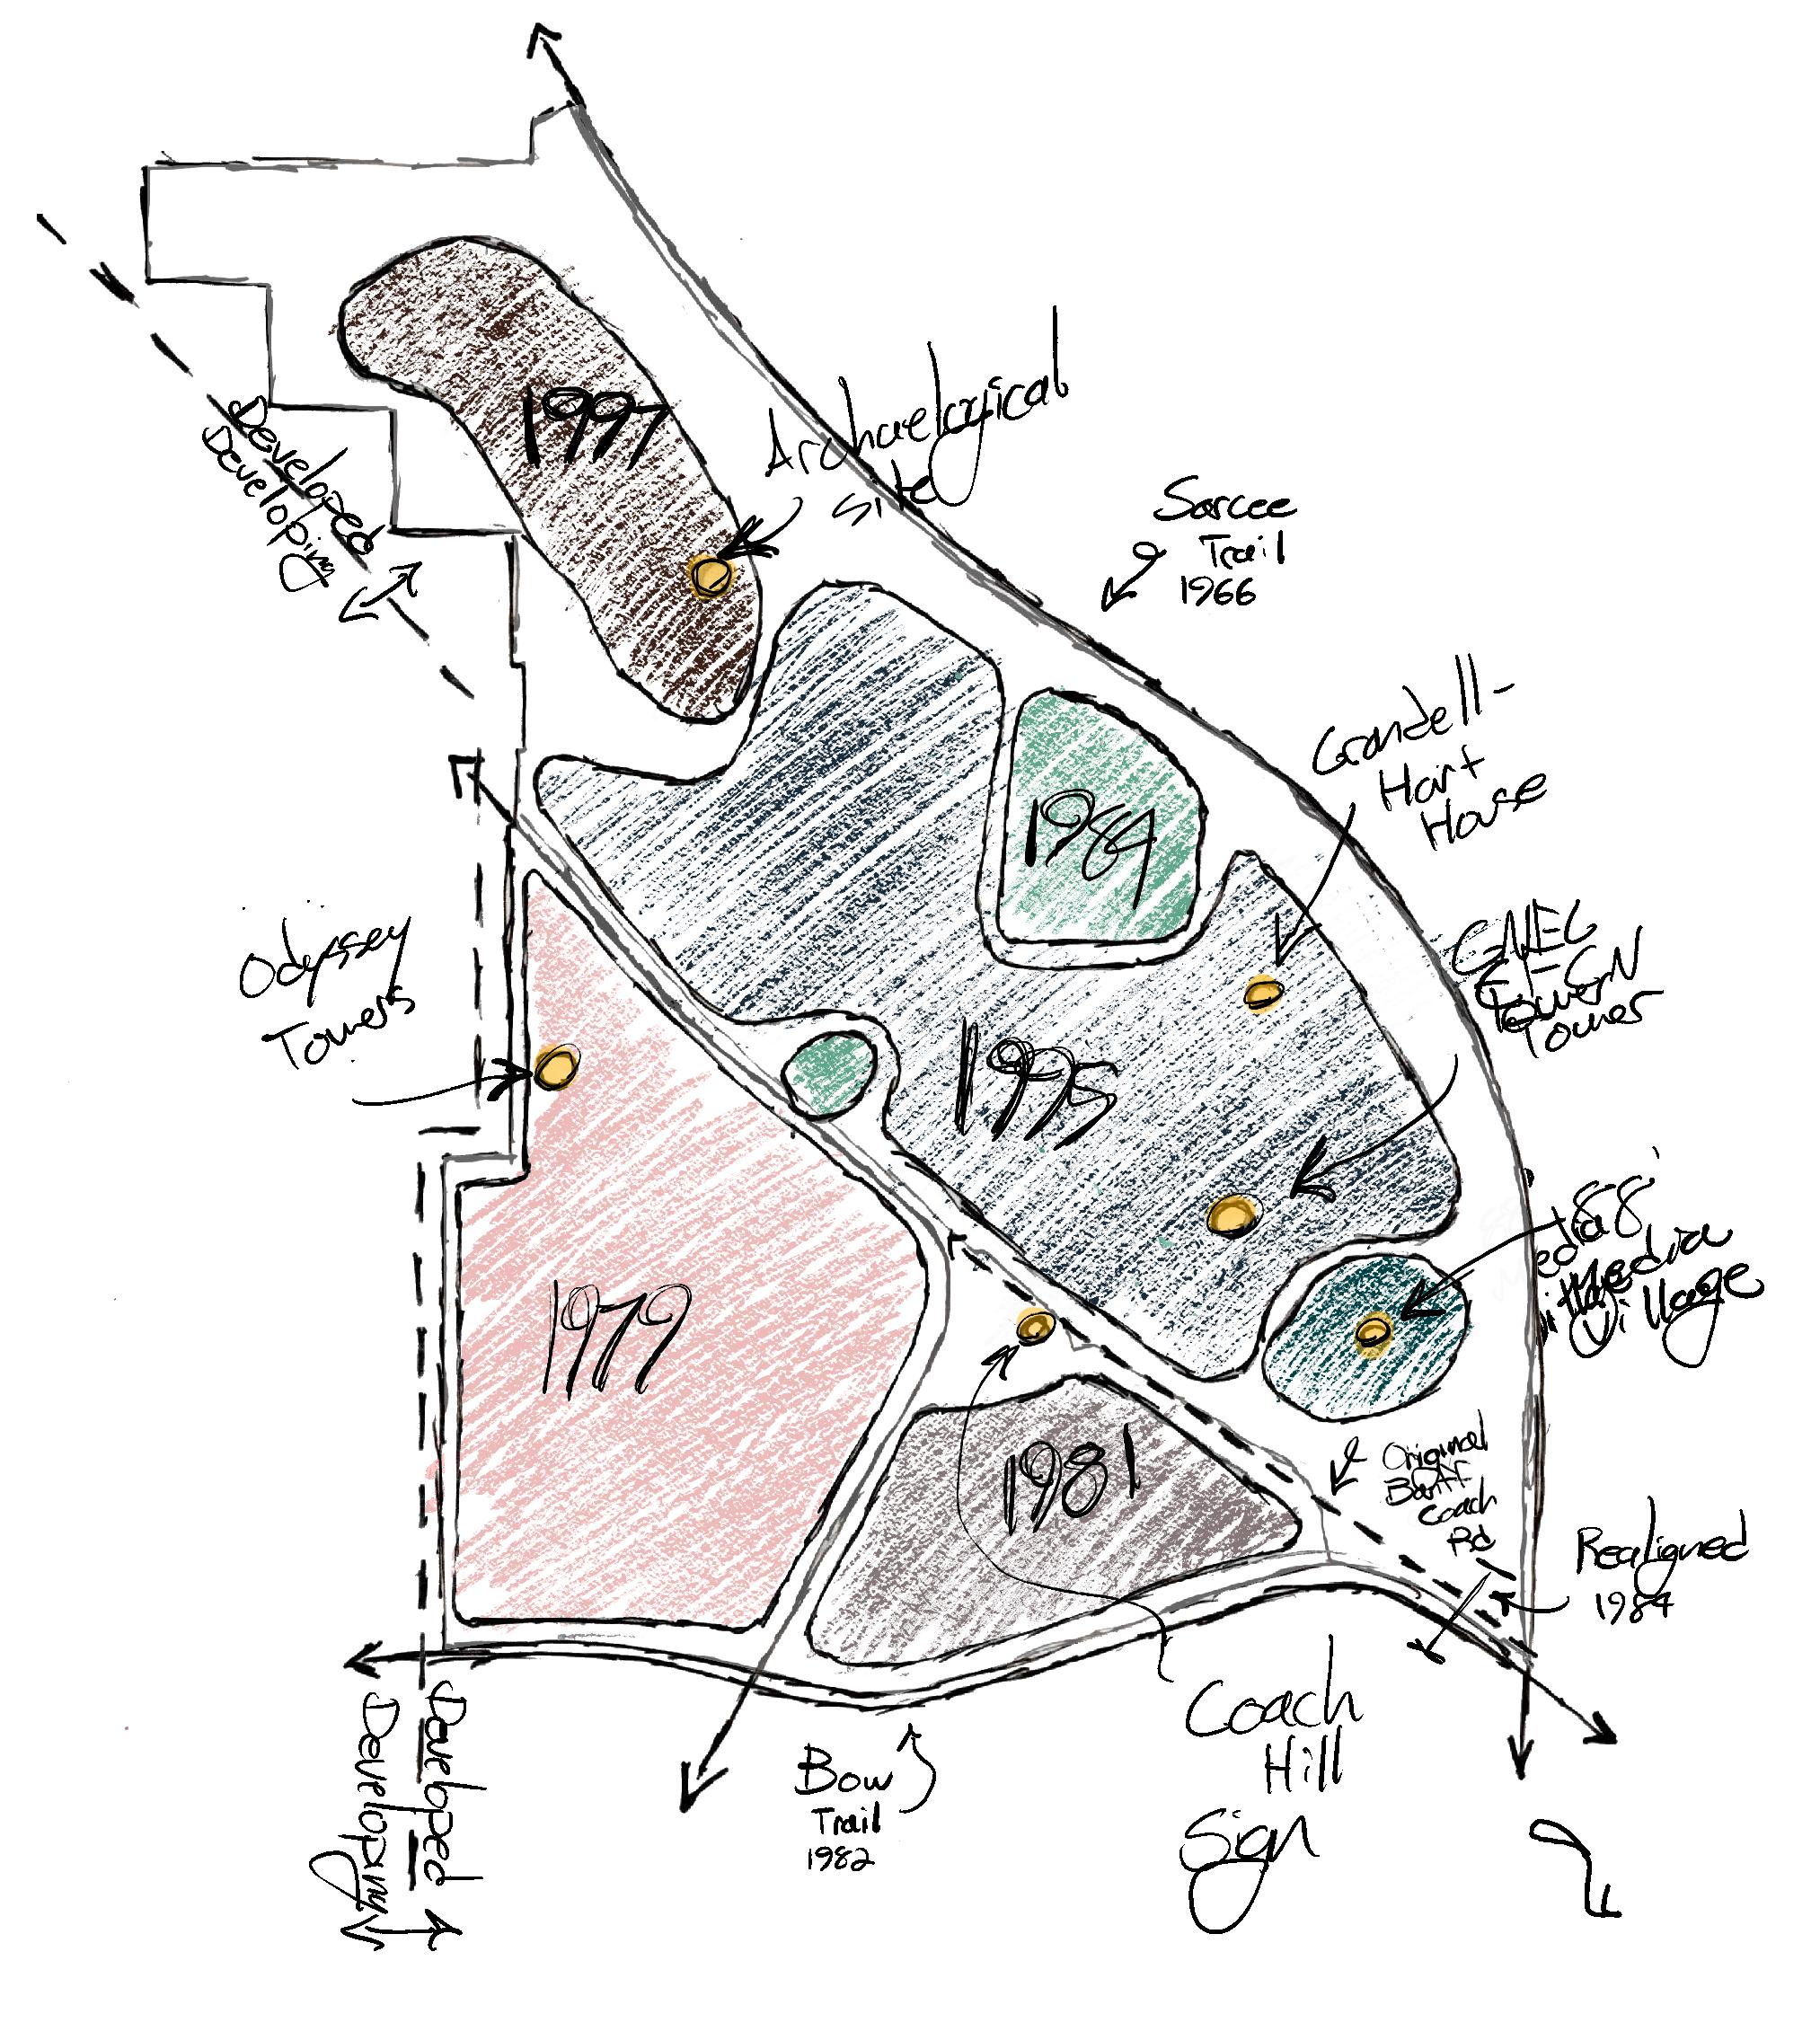 Developed
Developing
1997
Archaelogical
site
Sarcee
Trail
1966
1984
Hart
House
Odyssey
Towers
1995
Tower
1979
88'
Media
Village
1981
Original
Banff
Coach
Rd
Realigned
1984
Coach
Hill
Sign
Bow
Trail
1982
Developed
Developing